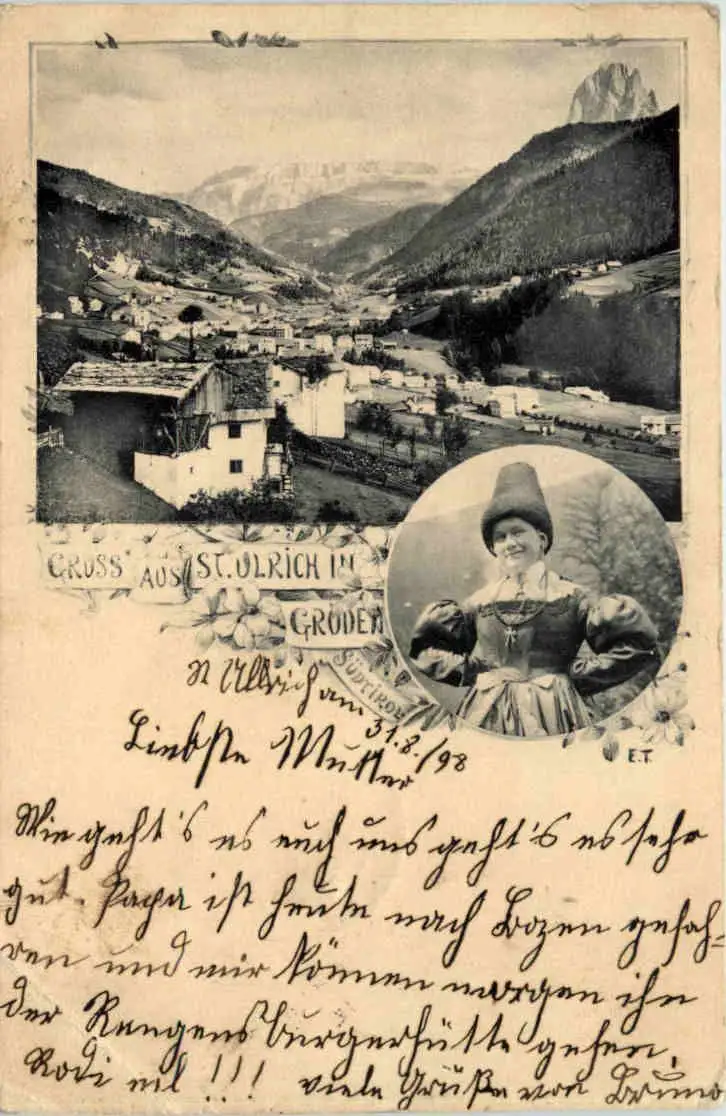 GRUSS AUS ST. ULRICH IN
GRÖDEN
SÜDTIROL
E.T.
St Ullrich am
31.8./98
Liebste Mutter
Wie geht's es euch uns geht's es sehr
gut. Papa ist heute nach Bozen gefah-
ren und wir können morgen ihn
der Regensburgerhütte gehen.
!!! viele Grüße von Bruno